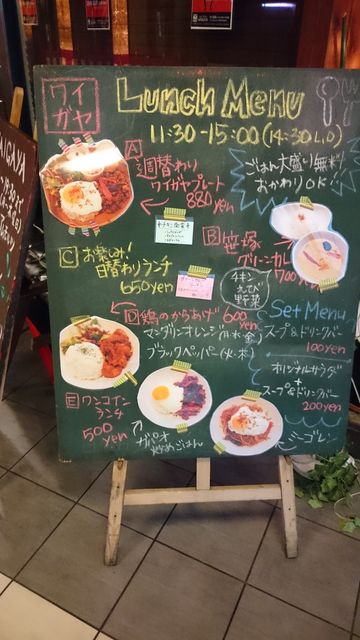 ワイガヤ
Lunch Menu
11:30-15:00(14:30L.O)
ごはん大盛り無料!
おかわりOK!
A 週替わり
ワイガヤプレート
880yen
B 笹塚
グリーンカレー
700yen
チキン
えび
野菜
C お楽しみ!
日替わりランチ
650yen
D 鶏のからあげ 600yen
マンダリンオレンジ(月・水・金)
ブラックペッパー(火・木)
Set Menu
スープ&ドリンクバー
100yen
オリジナルサラダ
+
スープ&ドリンクバー
200yen
E ワンコイン
ランチ
500yen
ガパオ
炒めごはん
ミーゴレン